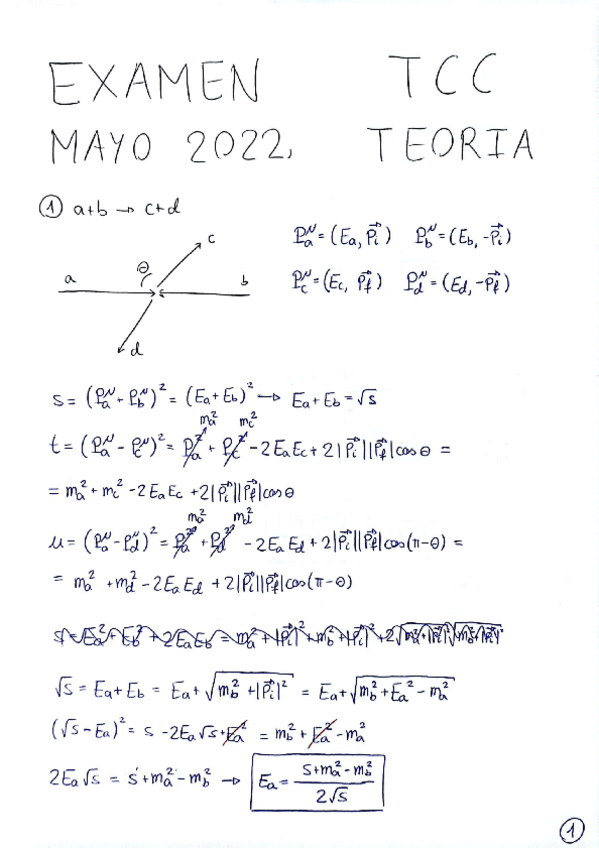 EXAMEN TCC
MAYO 2022, TEORIA
① a+b → c+d
P_a^μ = (E_a, \vec{P_i}) P_b^μ = (E_b, -\vec{P_i})
P_c^μ = (E_c, \vec{P_f}) P_d^μ = (E_d, -\vec{P_f})
c
θ
a b
d
s = (P_a^μ + P_b^μ)^2 = (E_a + E_b)^2 → E_a + E_b = √s
m_a^2 m_c^2
t = (P_a^μ - P_c^μ)^2 = P_a^2 + P_c^2 - 2E_aE_c + 2|\vec{P_i}||\vec{P_f}|cosθ =
= m_a^2 + m_c^2 - 2E_aE_c + 2|\vec{P_i}||\vec{P_f}|cosθ
m_a^2 m_d^2
u = (P_a^μ - P_d^μ)^2 = P_a^2 + P_d^2 - 2E_aE_d + 2|\vec{P_i}||\vec{P_f}|cos(π-θ) =
= m_a^2 + m_d^2 - 2E_aE_d + 2|\vec{P_i}||\vec{P_f}|cos(π-θ)
√s = E_a + E_b = E_a + √(m_b^2 + |\vec{P_i}|^2) = E_a + √(m_b^2 + E_a^2 - m_a^2)
(√s - E_a)^2 = s - 2E_a√s + E_a^2 = m_b^2 + E_a^2 - m_a^2
2E_a√s = s + m_a^2 - m_b^2 → E_a = (s + m_a^2 - m_b^2)/(2√s)
①